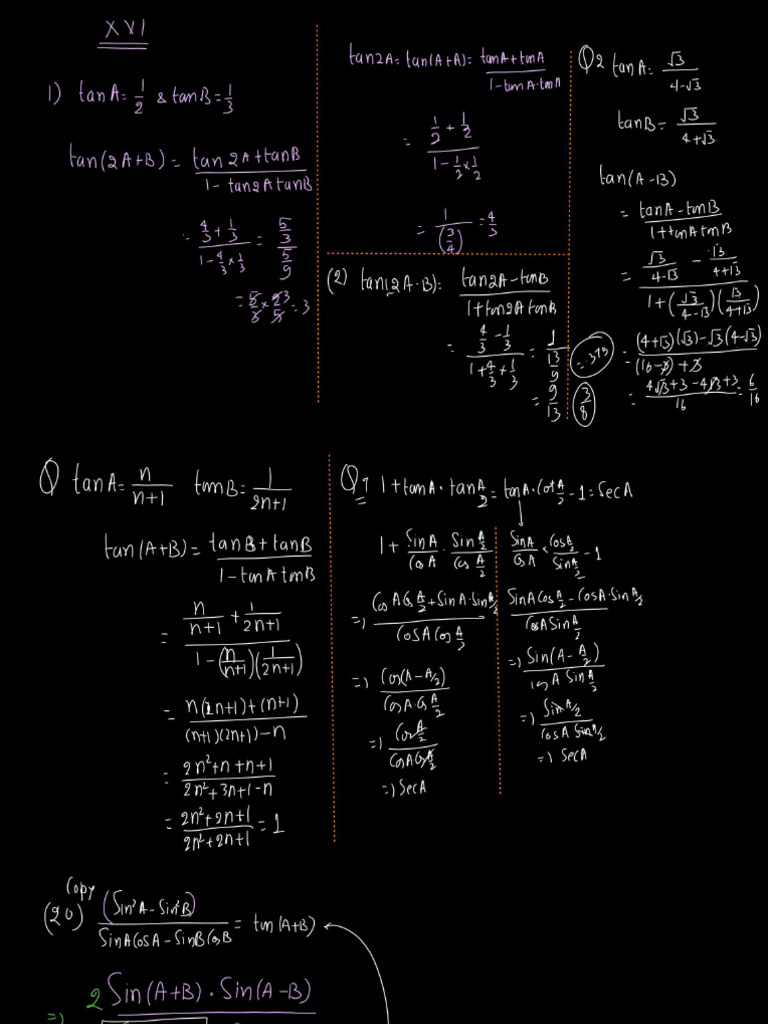 XVI
1) tanA = 1/2 & tanB = 1/3
tan(2A+B) = (tan2A+tanB)/(1-tan2AtanB)
= (4/3+1/3)/(1-4/3×1/3) = (5/3)/(5/9)
= 5/3 × 9/5 3 = 3
tan2A = tan(A+A) = (tanA+tanA)/(1-tanA·tanA)
= (1/2+1/2)/(1-1/2×1/2)
= 1/(3/4) = 4/3
(2) tan(2A-B) = (tan2A-tanB)/(1+tan2AtanB)
= (4/3-1/3)/(1+4/3×1/3) = 1/(13/9)
= 9/13
Q2 tanA = √3/(4-√3)
tanB = √3/(4+√3)
tan(A-B)
= (tanA-tanB)/(1+tanAtanB)
= (√3/(4-√3) - √3/(4+√3))/(1+(√3/(4-√3))(√3/(4+√3)))
= ((4+√3)(√3)-√3(4-√3))/((16-3)+3)
= (4√3+3-4√3+3)/16 = 6/16
= .375
3/8
Q tanA = n/(n+1) tanB = 1/(2n+1)
tan(A+B) = (tanB+tanB)/(1-tanAtanB)
= (n/(n+1)+1/(2n+1))/(1-(n/(n+1))(1/(2n+1)))
= (n(2n+1)+(n+1))/((n+1)(2n+1)-n)
= (2n²+n+n+1)/(2n²+3n+1-n)
= (2n²+2n+1)/(2n²+2n+1) = 1
Q9 1+tanA·tanA/2 = tanA·CotA/2-1 = SecA
1+SinA/CosA·SinA/2/CosA/2
=) (CosACosA/2+SinA·SinA/2)/(CosACosA/2)
=) Cos(A-A/2)/(CosA·CosA/2)
=) CosA/2/(CosACosA/2)
=) SecA
SinA/CosA×CosA/2/SinA/2-1
(SinACosA/2-CosA·SinA/2)/(CosASinA/2)
=) Sin(A-A/2)/(CosASinA/2)
=) SinA/2/(CosASinA/2)
=) SecA
Copy
(20) (Sin²A-Sin²B)/(SinACosA-SinBCosB) = tan(A+B)
=) 2 Sin(A+B)·Sin(A-B)